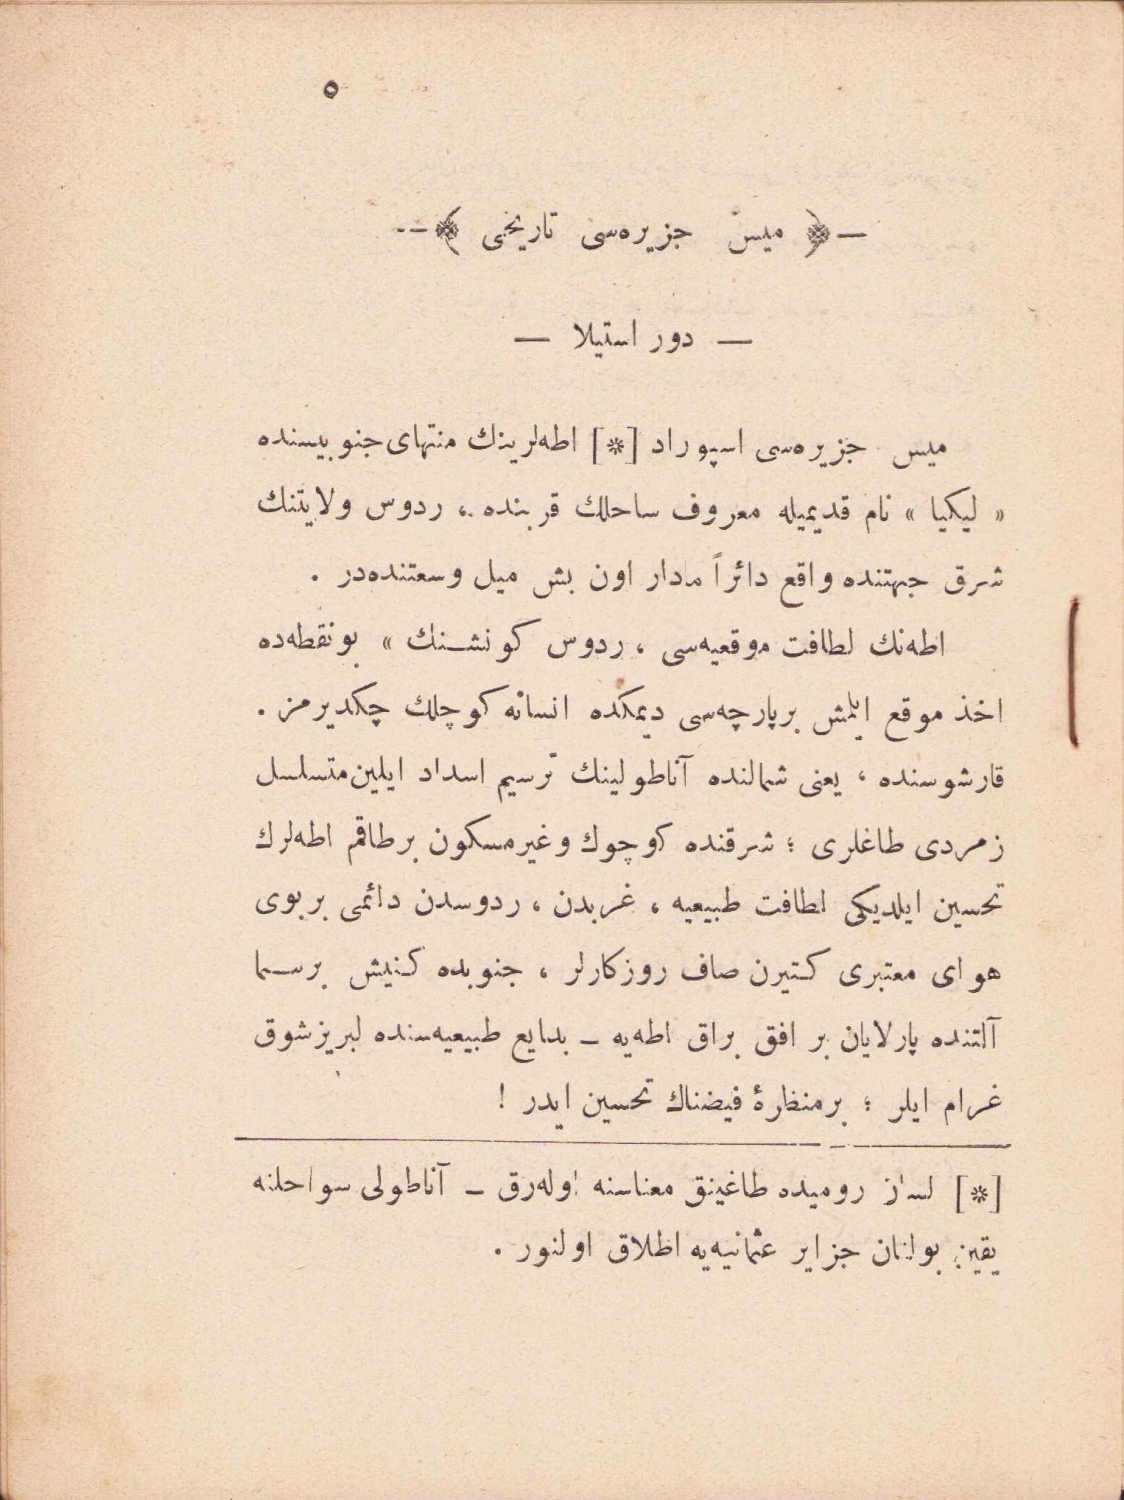 ٥
— ﴿ ميس جزيره‌سى تاريخى ﴾ —
— دور استيلا —
ميس جزيره‌سى اسپوراد [*] اطه‌لرينك منتهاى جنوبيسنده
« ليكيا » نام قديميله معروف ساحلك قربنده ، ردوس ولايتنك
شرق جهتنده واقع دائراً مادار اون بش ميل وسعتنده‌در .
اطه‌نك لطافت موقعيه‌سى ، ردوس كونشنك » بونقطه‌ده
اخذ موقع ايلمش برپارچه‌سى ديمكده انسانه كوچلك چكديرمز .
قارشوسنده ، يعنى شمالنده آناطولينك ترسيم اسداد ايلين متسلسل
زمردى طاغلرى ؛ شرقنده كوچوك وغيرمسكون برطاقم اطه‌لرك
تحسين ايلديكى لطافت طبيعيه ، غربدن ، ردوسدن دائمى بربوى
هواى معتبرى كتيرن صاف روزكارلر ، جنوبده كنيش برسما
آلتنده پارلايان بر افق براق اطه‌يه — بدايع طبيعيه‌سنده لبريزشوق
غرام ايلر ؛ برمنظرهٔ فيضناك تحسين ايدر !
[*] لسان روميده طاغينق معناسنه اوله‌رق — آناطولى سواحلنه
يقين بولنان جزاير عثمانيه‌يه اطلاق اولنور .